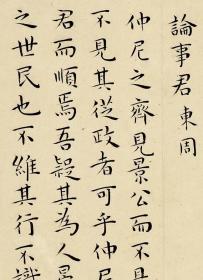 論事君東周
仲尼之齊見景公而不見
不見其從政者可乎仲尼
君而順焉吾疑其為人晏
之世民也不維其行不識